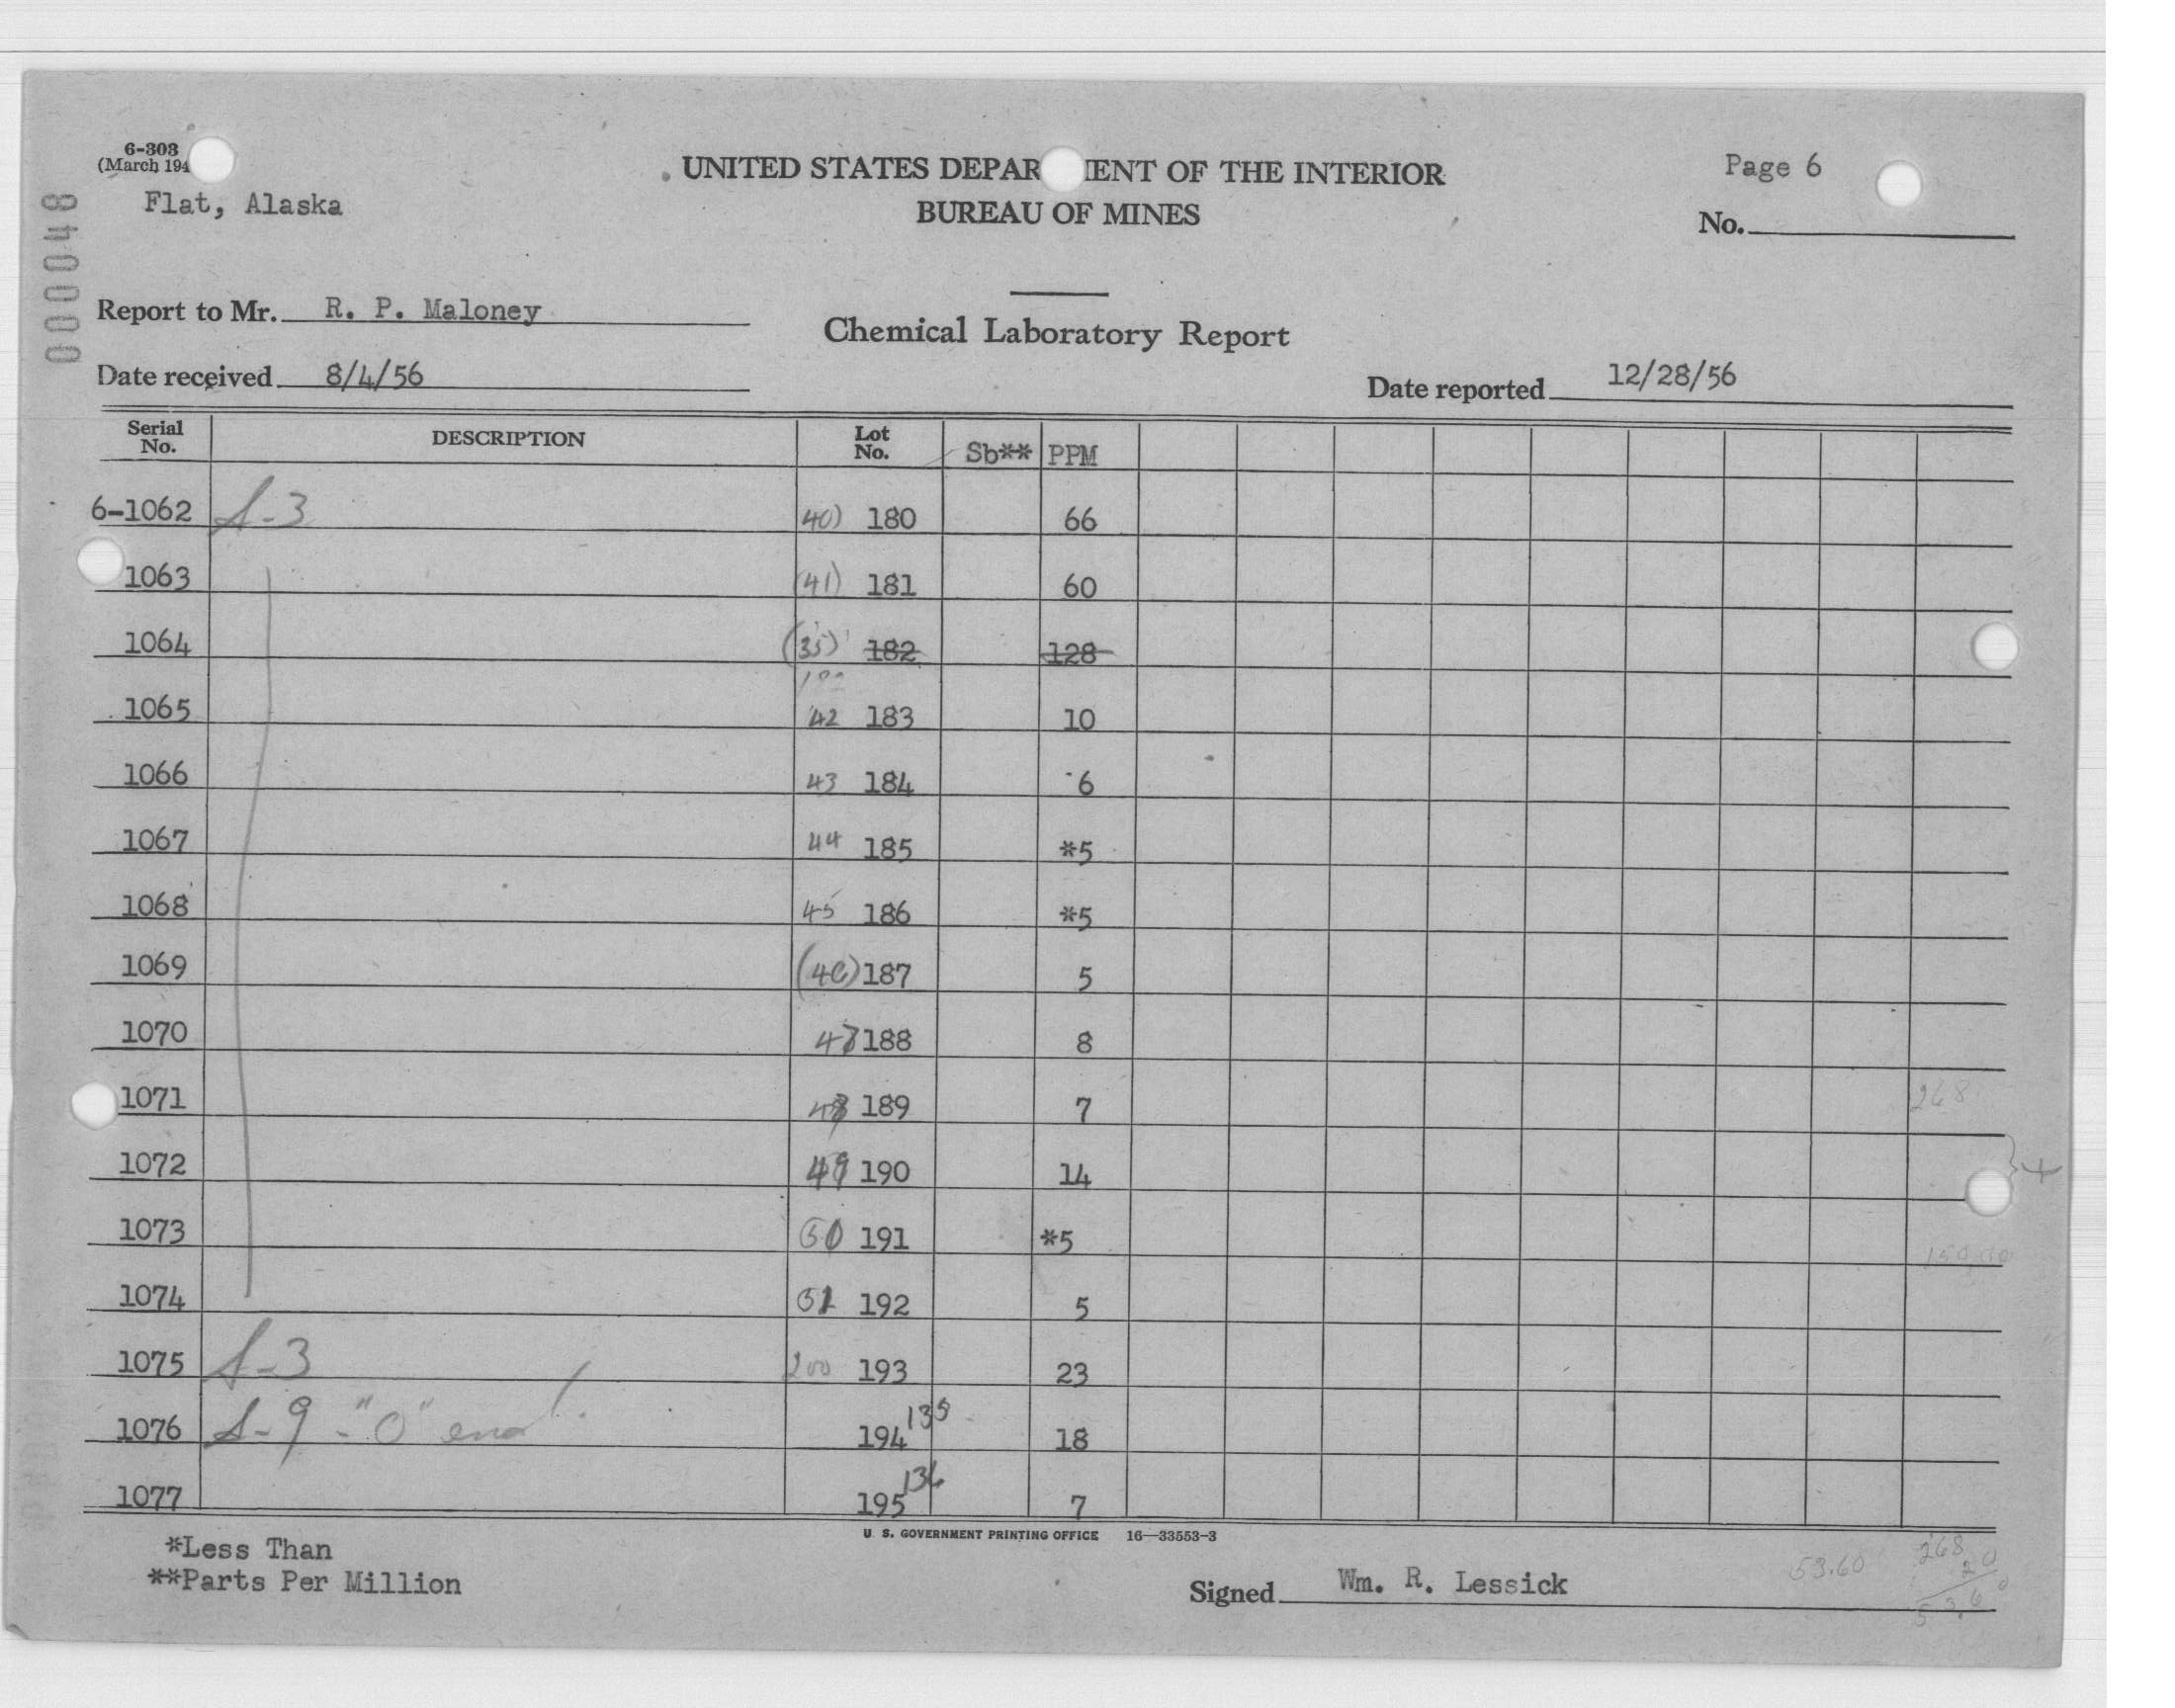 6-303
(March 194
Flat, Alaska
000048
UNITED STATES DEPAR MENT OF THE INTERIOR
BUREAU OF MINES
Page 6
No.
Report to Mr. R. P. Maloney
Chemical Laboratory Report
Date received 8/4/56
Date reported 12/28/56
Serial No. DESCRIPTION Lot No. Sb** PPM
6-1062 S-3 40) 180 66
1063 (41) 181 60
1064 (35) 182 128
1065 42 183 10
1066 43 184 6
1067 44 185 *5
1068 45 186 *5
1069 (46) 187 5
1070 47 188 8
1071 48 189 7
268
1072 49 190 14
1073 50 191 *5
1074 51 192 5
1075 S-3 200 193 23
1076 S-9 - "O" end 194 135 18
1077 195 136 7
U. S. GOVERNMENT PRINTING OFFICE 16—33553-3
*Less Than
**Parts Per Million
Signed Wm. R. Lessick
53.60
268
20
53.60